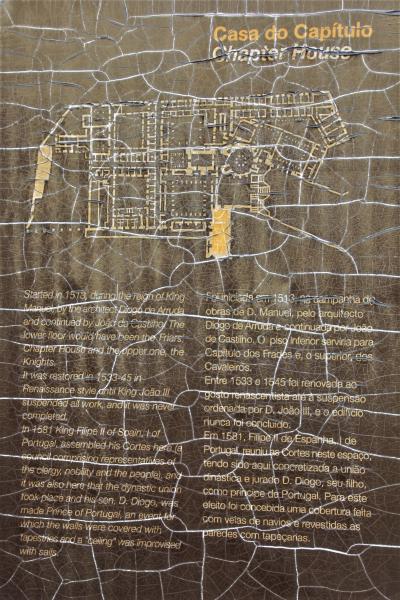 Casa do Capítulo
Chapter House
Started in 1513, during the reign of King
Manuel, by the architect Diogo de Arruda
and continued by João de Castilho. The
lower floor would have been the Friars'
Chapter House and the upper one, the
Knights.
It was restored in 1533-45 in
Renaissance style until King João III
suspended all work, and it was never
completed.
In 1581 King Filipe II of Spain, I of
Portugal, assembled his Cortes here (a
council comprising representatives of
the clergy, nobility and the people), and
it was also here that the dynastic union
took place and his son, D. Diogo, was
made Prince of Portugal, an event for
which the walls were covered with
tapestries and a "ceiling" was improvised
with sails.
Foi iniciada em 1513, na campanha de
obras de D. Manuel, pelo arquitecto
Diogo de Arruda e continuada por João
de Castilho. O piso inferior serviria para
Capítulo dos Frades e, o superior, dos
Cavaleiros.
Entre 1533 e 1545 foi renovada ao
gosto renascentista até à suspensão
ordenada por D. João III, e o edifício
nunca foi concluído.
Em 1581, Filipe II de Espanha, I de
Portugal, reuniu as Cortes neste espaço,
tendo sido aqui concretizada a união
dinástica e jurado D. Diogo, seu filho,
como príncipe de Portugal. Para este
efeito foi concebida uma cobertura feita
com velas de navios e revestidas as
paredes com tapeçarias.